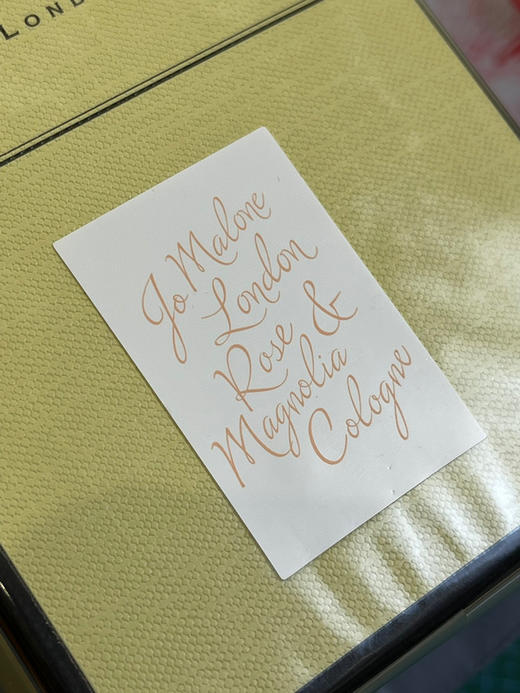 LOND
Jo Malone
London
Rose &
Magnolia
Cologne